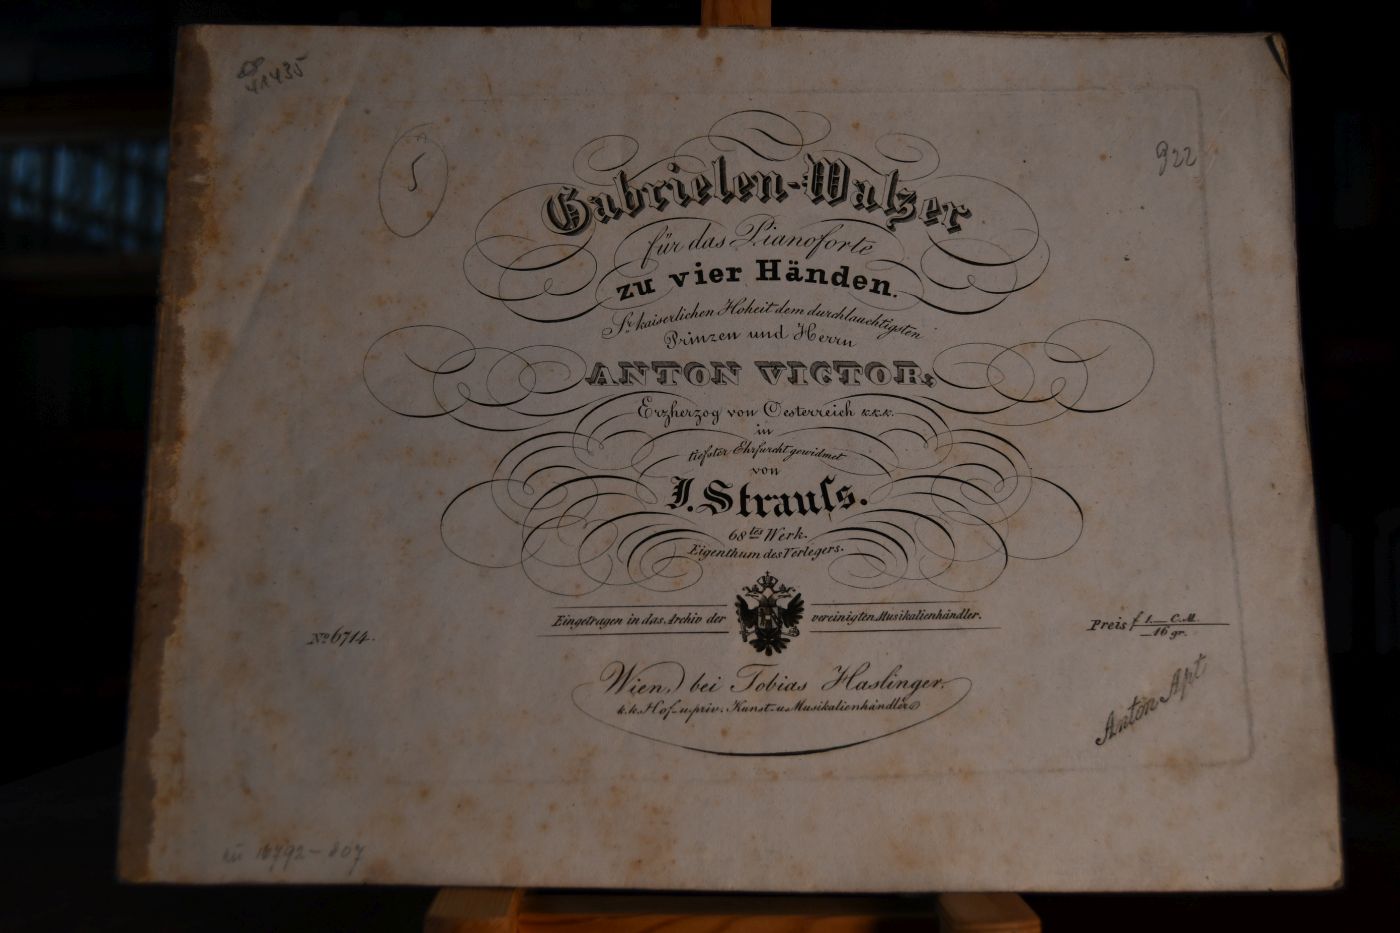 41435
5
922
Gabrielen-Walzer
für das Pianoforte
zu vier Händen.
Sr. kaiserlichen Hoheit dem durchlauchtigsten
Prinzen und Herrn
ANTON VICTOR,
Erzherzog von Oesterreich k.k.k.
in
tiefster Ehrfurcht gewidmet
von
J. Strauſs.
68tes Werk.
Eigenthum des Verlegers.
Eingetragen in das Archiv der vereinigten Musikalienhändler.
No 6714.
Preis f 1.— C.M.
—16 gr.
Wien, bei Tobias Haslinger.
k.k. Hof- u. priv. Kunst- u. Musikalienhändler
Anton Apt
16792-807